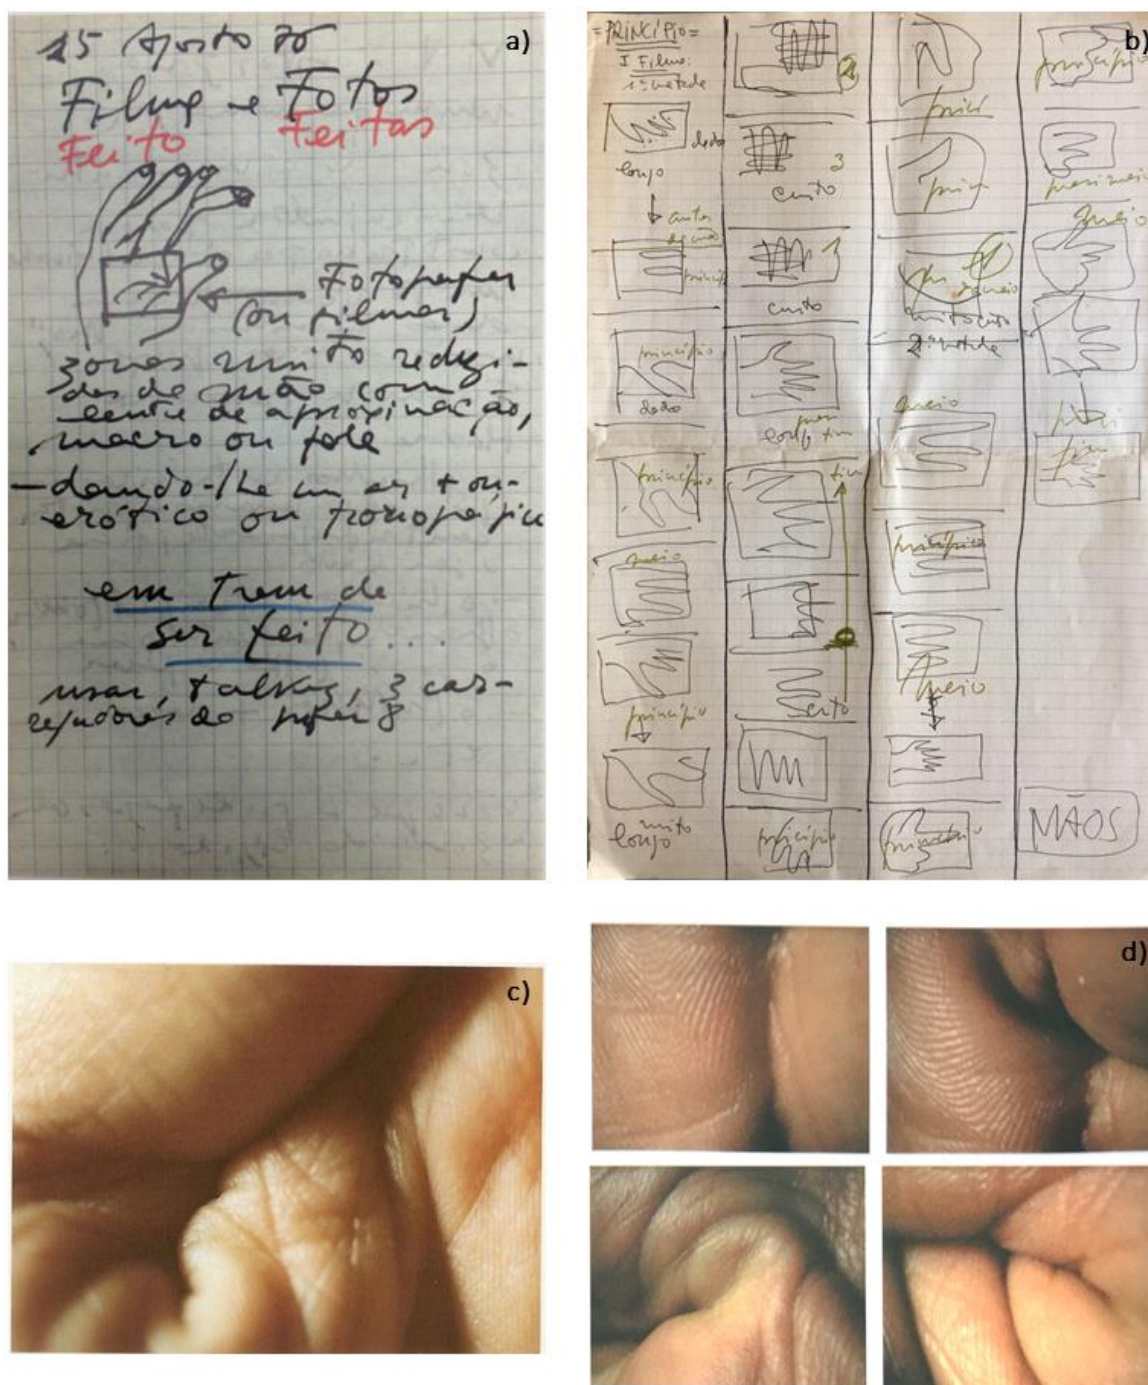 a)
15 Agosto 76
Filme e Fotos
Feito Feitas
Fotografar
(ou filmar)
zonas muito reduzi-
das da mão com
lente de aproximação,
macro ou fole
— dando-lhe um ar + ou -
erótico ou pornográfico
em trem de
ser feito....
usar, talvez, 3 car-
regadores do super 8
b)
=PRINCÍPIO=
I Filme:
1ª metade
dedo
longo
princípio
dedo
princípio
meio
princípio
muito
longo
2
3
curto
1
curto
longo fim
fim
princípio
princi
1
meio
muito curto
2ª metade
meio
princípio
meio
princípio
meio
fim
MÃOS
c)
d)